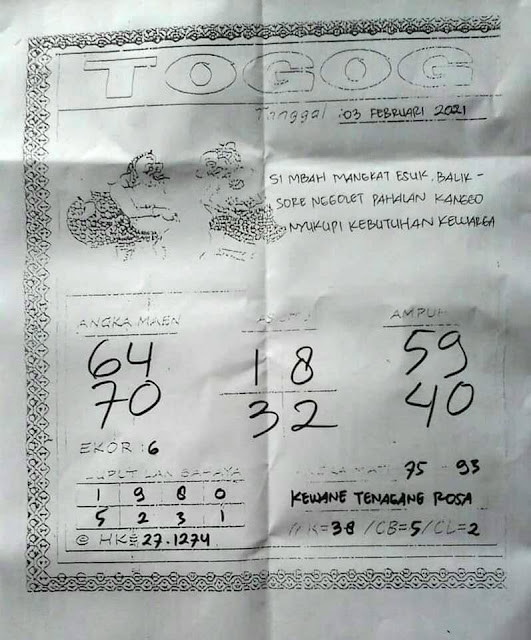 TOGOG
Tanggal : 03 FEBRUARI 2021
SI MBAH MANGKAT ESUK, BALIK -
SORE NGGOLET PAHALAN KANGGO
NYUKUPI KEBUTUHAN KELUARGA
ANGKA MAEN
AMPUH
64 18 59
70 32 40
EKOR : 6
75 - 93
1 9 8 0
5 2 3 1
KEWANE TENAGANG ROSA
© HK= 27.1274
=38 /CB=5/CL=2